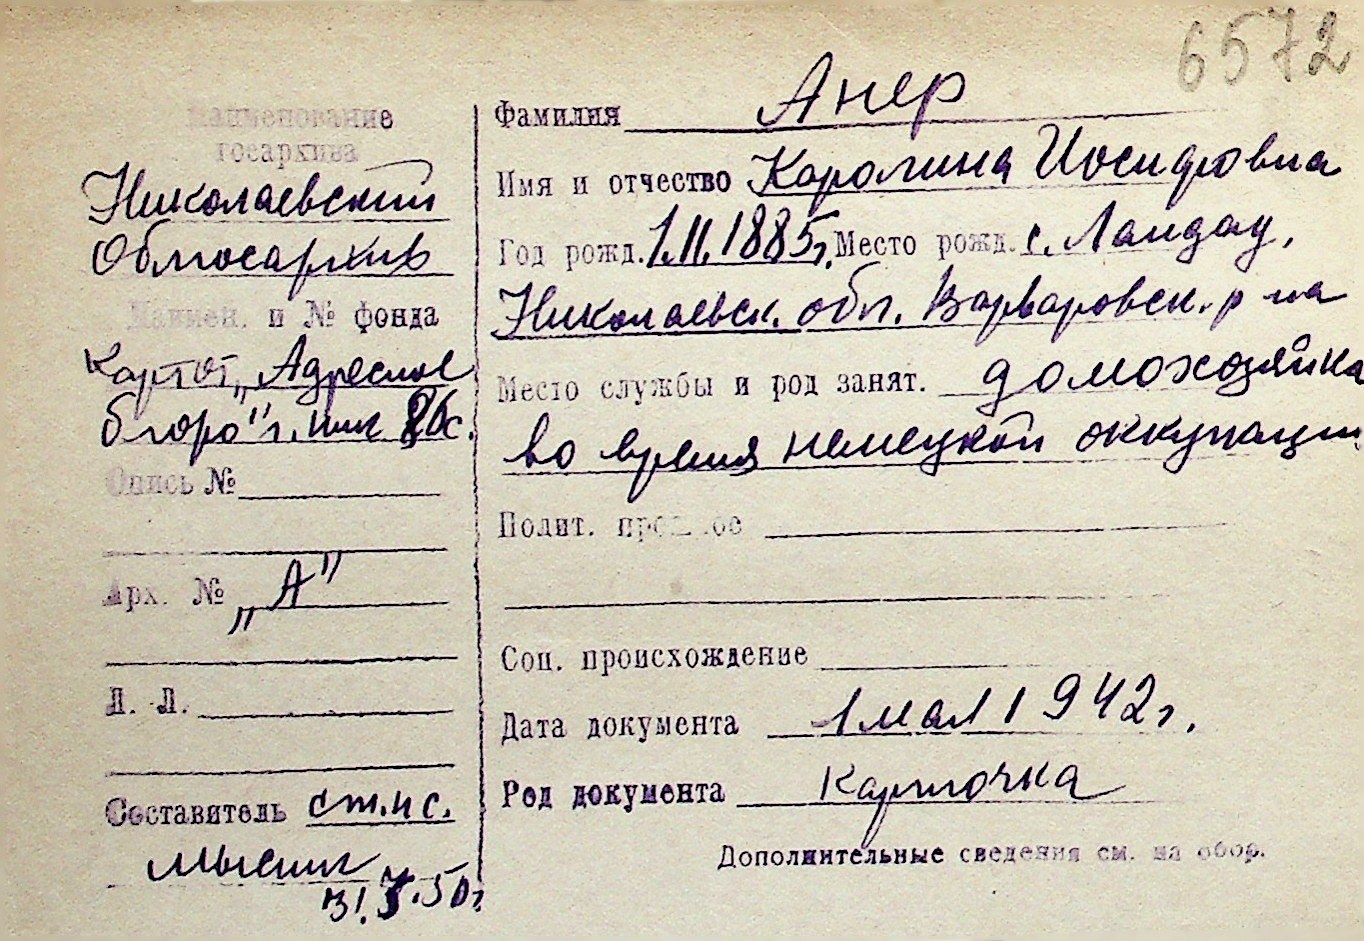 6572
Наименование
госархива
Николаевский
Облгосархив
Наимен. и № фонда
Картот. „Адресное
бюро" г.
Опись №
Арх. № „А"
Л. Л.
Составитель ст. н с.
50г.
Фамилия Анер
Имя и отчество Каролина Иосифовна
Год рожд. 1.II.1885г. Место рожд. с. Ландау,
Николаевск. обл. Варваровск. р на
Место службы и род занят. домохозяйка
во время немецкой оккупации.
Полит. прошлое
Соц. происхождение
Дата документа 1 мая 1942г.
Род документа Карточка
Дополнительные сведения см. на обор.